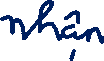 nhận